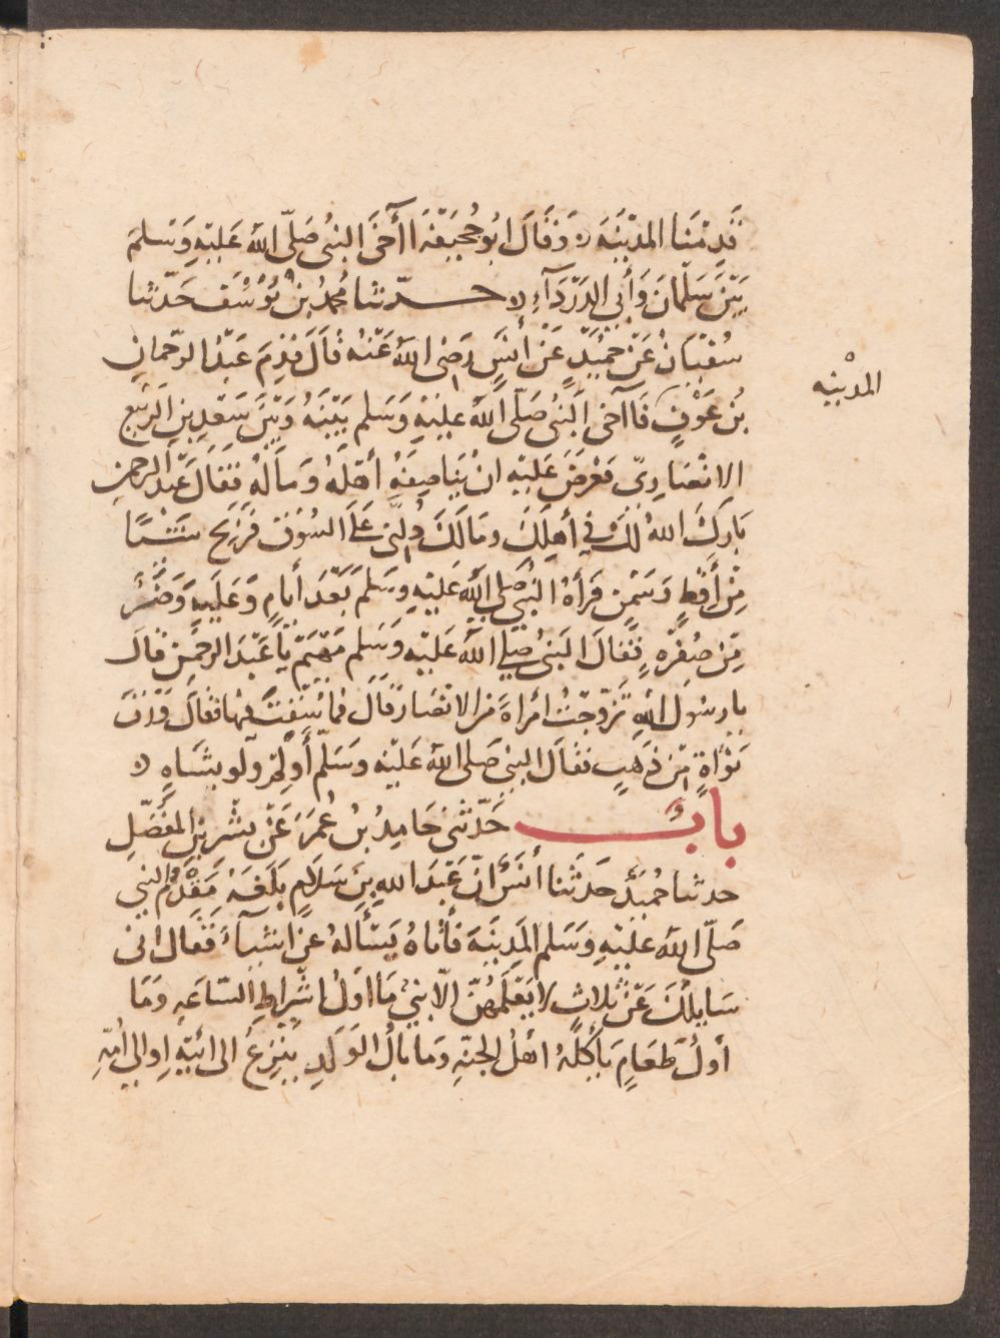 قَدِمْنَا المدِيْنَةَ وَقَالَ ابُو جُحَيْفَةَ اآخَى النبىُ صَلّى اللهُ عَلَيْهِ وَسَلمَ
بَيْنَ سَلْمَانَ وَأَبِي الدَرْدَآءِ حدّثنا مُحمدُ بنُ يُوْسُف حَدّثنا
سُفْيَانُ عَنْ حُمَيْدٍ عَنْ أَنَسٍ رَضِى اللهُ عَنْهُ قالَ قَدِمَ عَبْدُ الرّحمانِ
المدْينه
بنُ عَوْفٍ فَاآخى النَبىُ صَلّى اللهُ عليْهِ وَسَلم بَيْنَهُ وَبَيْنَ سَعْدِ بنِ الرَبيع
الانْصَارِىّ فعْرضَ عَلَيْهِ انْ يُنَاصِفَهُ أَهْلَهُ وَمَالَهُ فَقَالَ عَبْدُ الرحمنِ
بَارَكَ اللهُ لَكَ في أَهلِكَ ومَالَكَ دُلَّنى عَلَى السُوْقِ فَرَبِحَ شَيْئًا
مِنْ أَقِطٍ وَسَمْنٍ فَرَأهُ النبىُّ صَلى اللهُ عَليْهِ وسَلم بَعْدَ أيامٍ وَعَلَيْهِ وَضَرٌ
مِنْ صُفْرَةٍ فَقَالَ النَبىُ صَلى اللهُ عَليْه وَسَلم مَهْيَمْ يَا عَبْدَ الرحمنِ قالَ
يا رسُولَ اللهِ تَزَوّجْتُ امْرأةً من الانْصَار قالَ فمَا سُقْتَ فيها فقَالَ وَزْنَ
نَوَاةٍ مِن ذَهَبٍ فقَالَ النبى صَلى اللهُ عَلَيْه وَسَلّم أَوْلِمْ ولَو بشَاةٍ
بابُ حَدّثنى حَامِدُ بنُ عُمَرَ عَنْ بِشْرِ بنِ المُفَضَّلِ
حدثنا حُمَيْدٌ حَدَثَنا أَنَسٌ انّ عَبْدَ اللهِ بنَ سَلَامٍ بَلَغَهُ مَقْدَمُ النبي
صَلّى اللهُ عليْهِ وَسَلم المَدِينَةَ فَأَتَاهُ يَسْأَلهُ عن اشْيَآءَ فَقَال انى
سَايلُكَ عَنْ ثلاثٍ لا يَعْلَمُهُنّ الّا نبىٌ مَا اوَلُ اشْرَاطِ السّاعَةِ وَمَا
أَولُ طعَامٍ يَأكُلهُ اهْلُ الجنّةِ ومَا بَالُ الوَلَدِ يَنْزِعُ الى ابِيْهِ او الى أُمّهِ